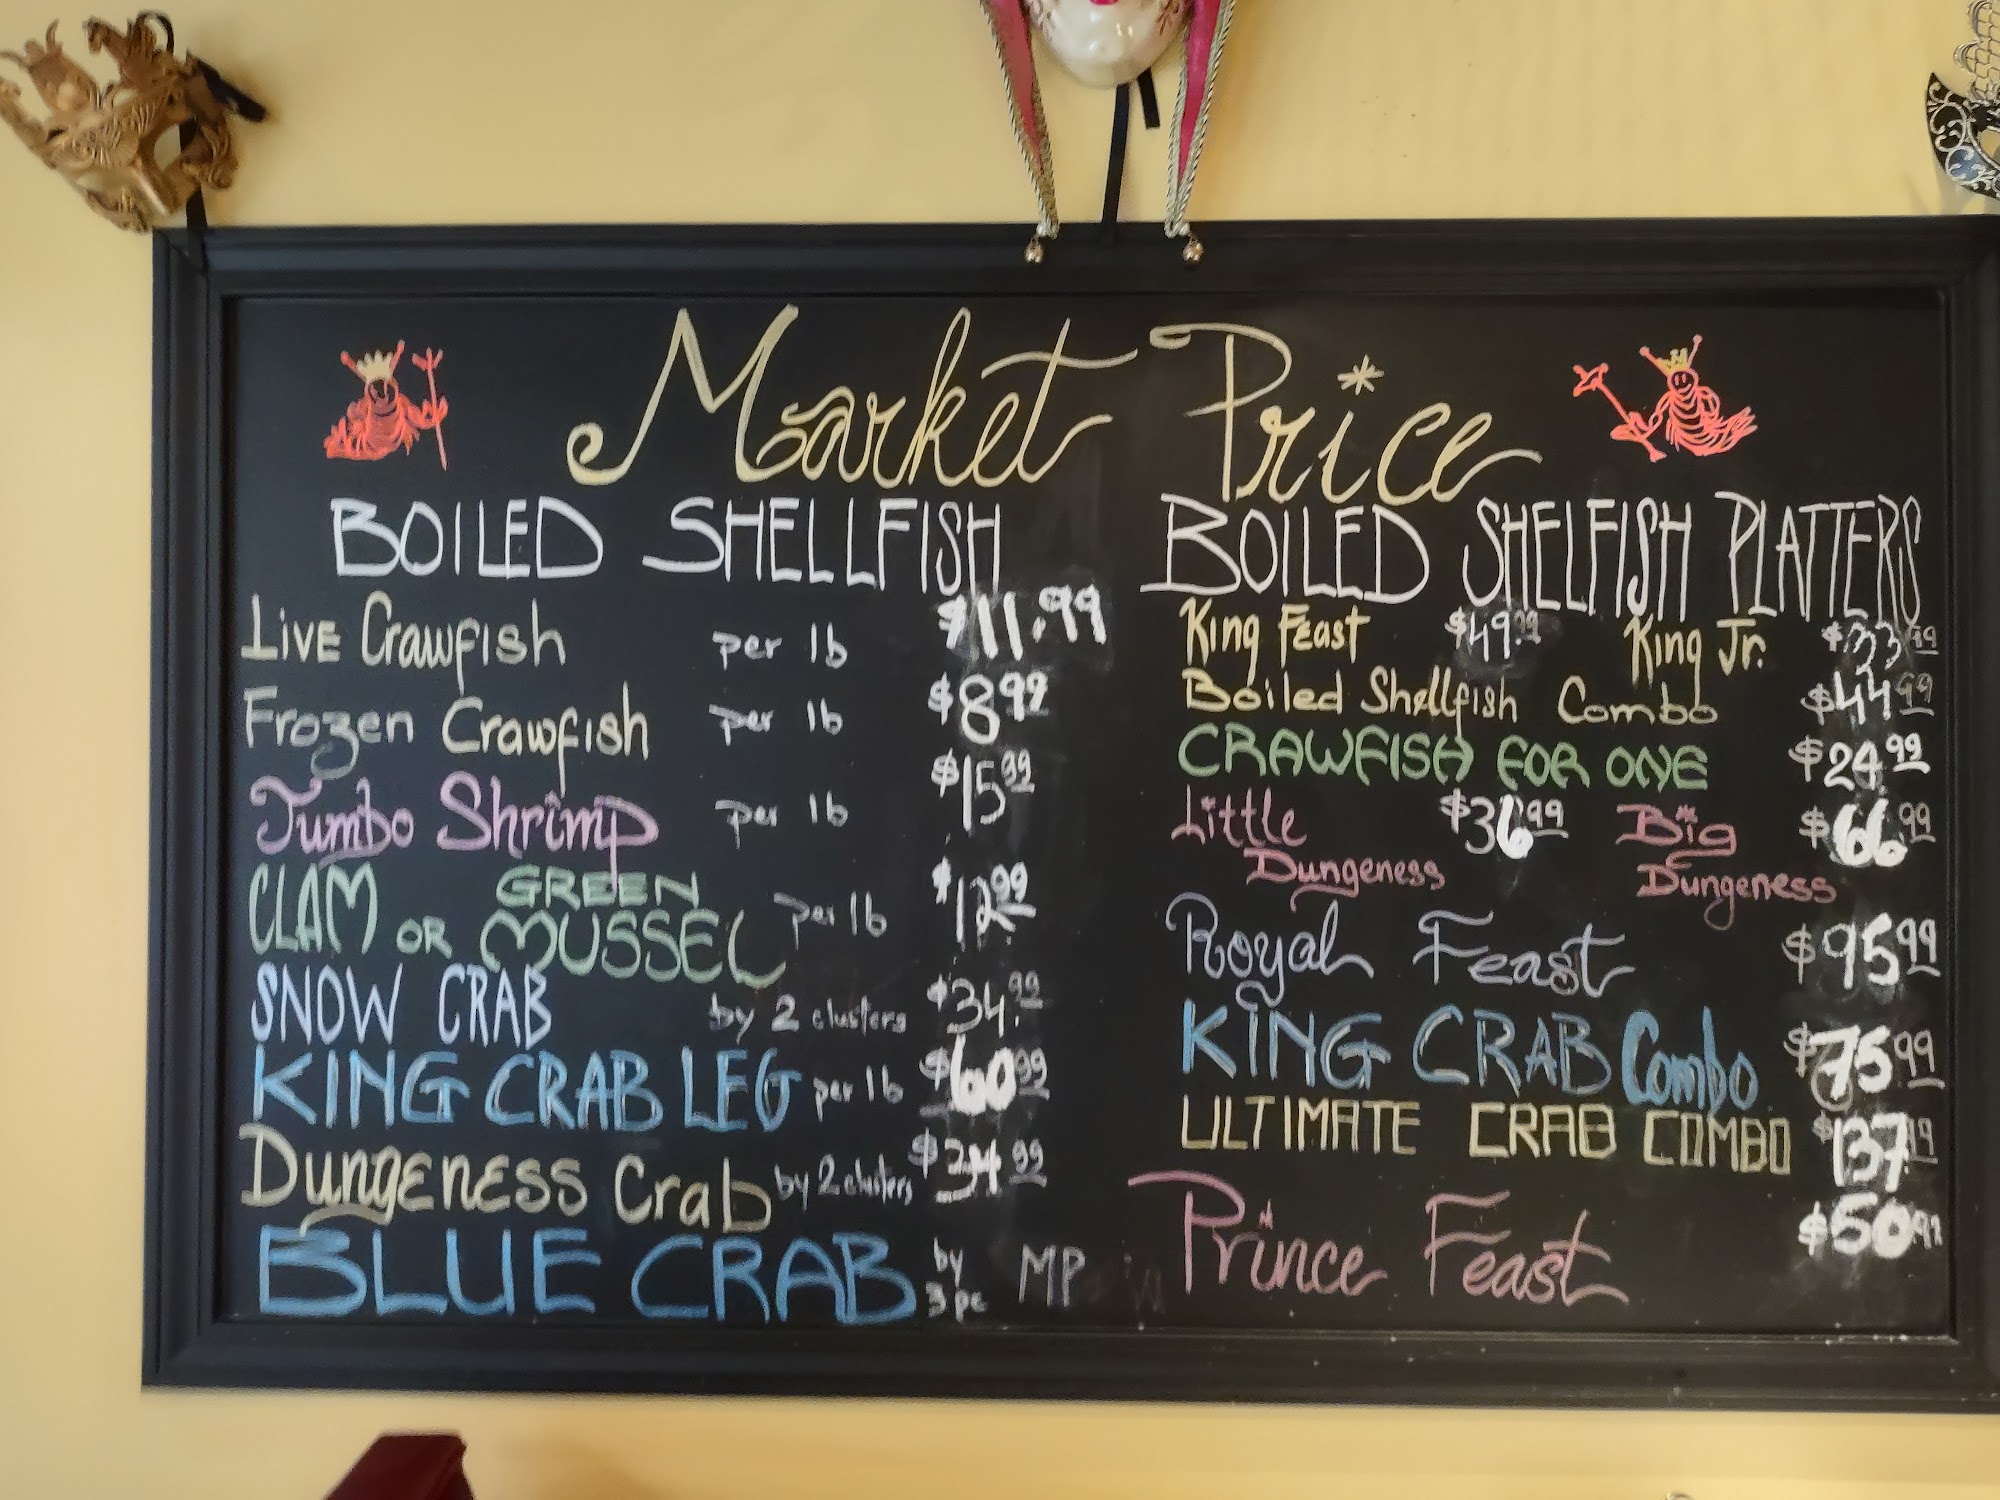 Market Price
BOILED SHELLFISH
Live Crawfish per lb $11.99
Frozen Crawfish per lb $8.99
Jumbo Shrimp per lb $15.99
CLAM OR GREEN MUSSEL per lb $12.99
SNOW CRAB by 2 clusters $34.99
KING CRAB LEG per lb $60.99
Dungeness Crab by 2 clusters $34.99
BLUE CRAB by 3 pc MP
BOILED SHELFISH PLATTERS
King Feast $49.99 King Jr. $33.99
Boiled Shellfish Combo $44.99
CRAWFISH FOR ONE $24.99
Little Dungeness $36.99 Big Dungeness $66.99
Royal Feast $95.99
KING CRAB Combo $75.99
ULTIMATE CRAB COMBO $137.99
Prince Feast $50.99